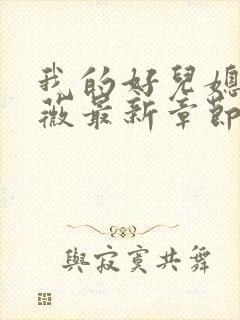 我的好兒媳
薇最新章節
與寂寞共舞